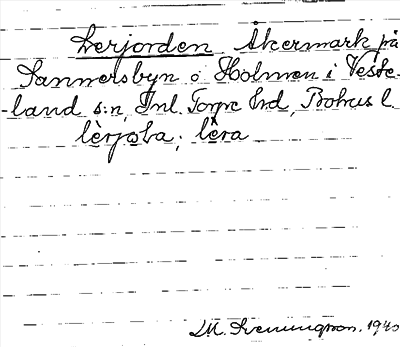 Lerjorden Åkermark på
Sannersbyn o Holmen i Veste-
-land s:n, Inl. Torpe hrd, Bohus l.
lèrjoḷa; lèra
M. Svenungsson. 1940